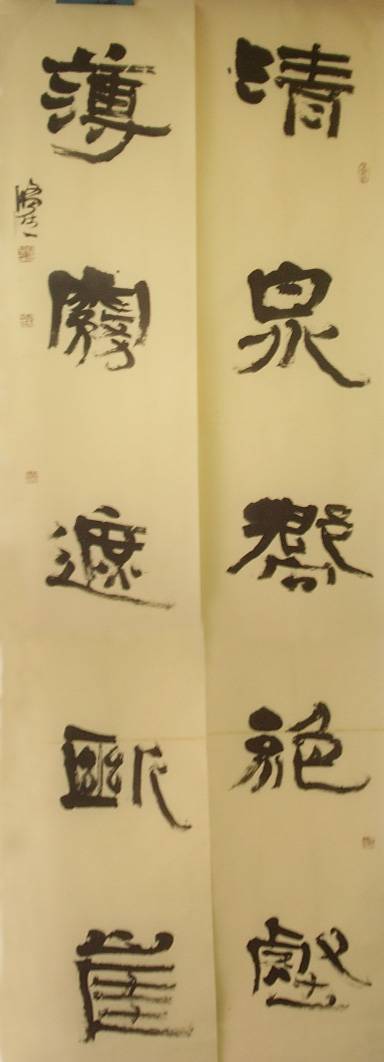 清泉響絕壑
薄霧遮斷崖